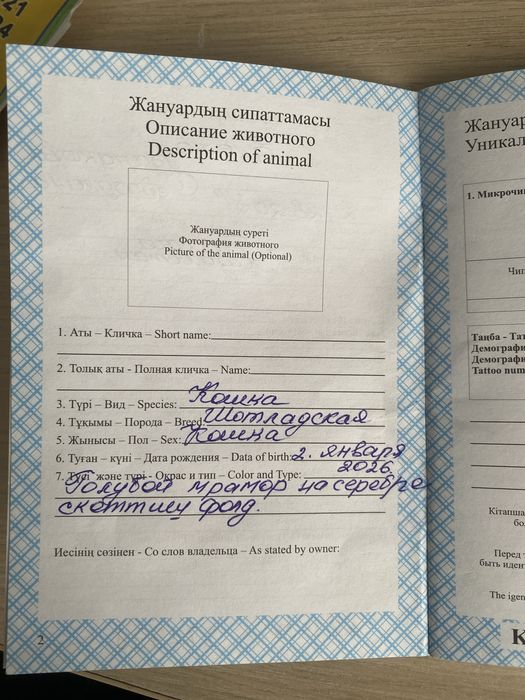 21
24
Жануардың сипаттамасы
Описание животного
Description of animal
Жануардың суреті
Фотография животного
Picture of the animal (Optional)
1. Аты – Кличка – Short name:
2. Толық аты - Полная кличка – Name:
3. Түрі – Вид – Species: Кошка
4. Тұқымы – Порода – Breed: Шотладская
5. Жынысы – Пол – Sex: Кошка
6. Туған – күні – Дата рождения – Data of birth: 2. января
2026
7. Түсі және түрі - Окрас и тип – Color and Type:
Голубой мрамор на серебре
скоттиш фолд.
Иесінің сөзінен - Со слов владельца – As stated by owner:
2
Жануар
Уникал
1. Микрочи
Чи
Таңба - Тат
Демографи
Демографи
Tattoo num
Кітапша
бо
Перед
быть иден
The igen
К